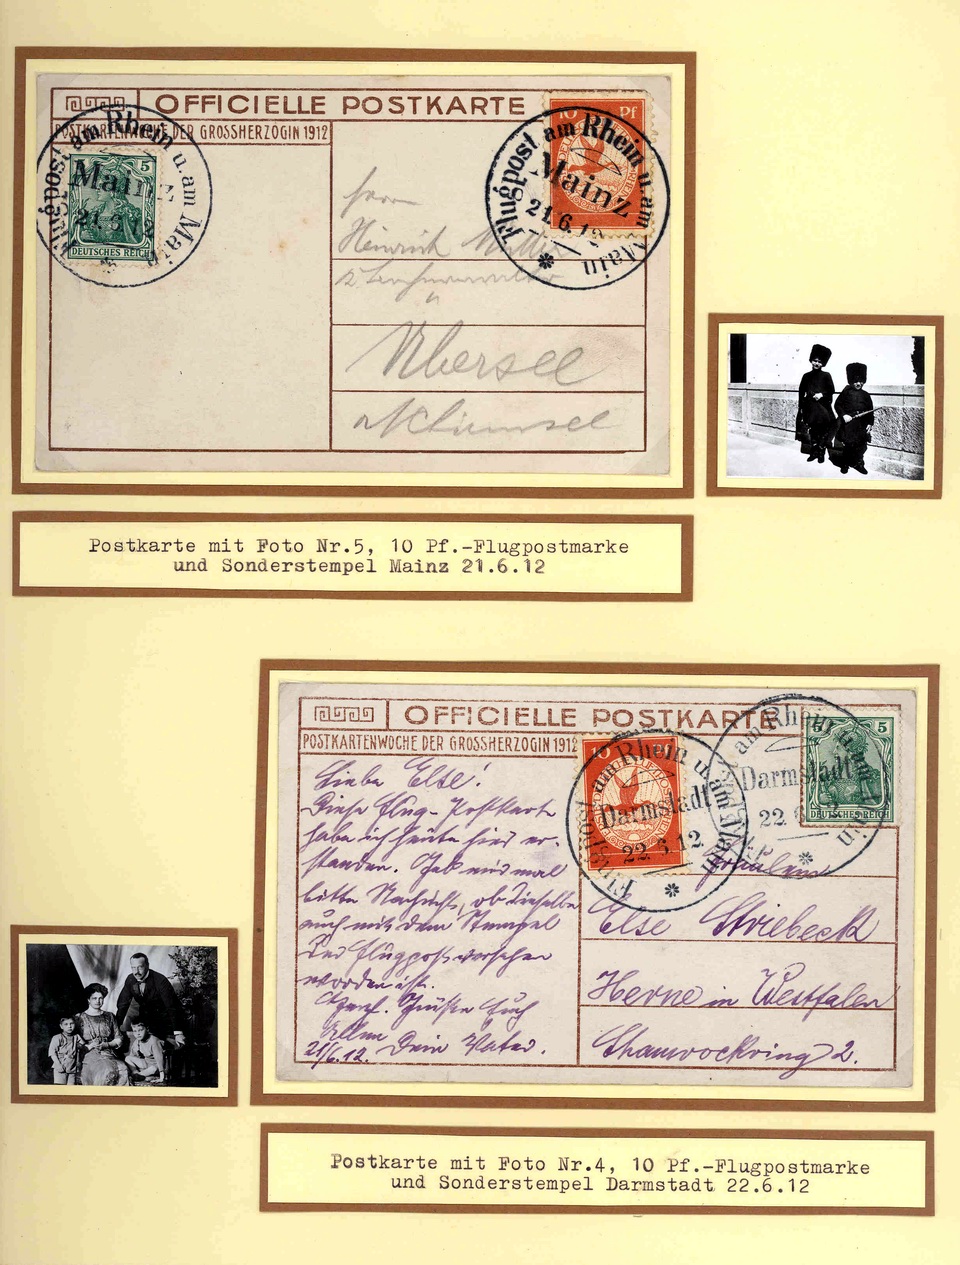 OFFICIELLE POSTKARTE
POSTKARTENWOCHE DER GROSSHERZOGIN 1912
Flugpost am Rhein u. am Main
Mainz
21.6.12
5
DEUTSCHES REICH
10 Pf
Flugpost am Rhein u. am Main
Mainz
21.6.12
Herrn
Heinrich
Übersee
a/Chiemsee
Postkarte mit Foto Nr.5, 10 Pf.-Flugpostmarke
und Sonderstempel Mainz 21.6.12
OFFICIELLE POSTKARTE
POSTKARTENWOCHE DER GROSSHERZOGIN 1912
10
Flugpost am Rhein u. am Main
Darmstadt
22.6.12
am Rhein u. am Main
Darmstadt
22.6
5 5
DEUTSCHES REICH
Liebe Else!
Diese Flug-Postkarte
habe ich heute hier er-
standen. Gib mir mal
bitte Nachricht, ob dieselbe
auch mit dem Stempel
der Flugpost versehen
worden ist.
Herzl. Grüße Euch
Allen
21/6.12. Dein Vater.
Fräulein
Else Striebeck
Herne in Westfalen
Shamrockring 2.
Postkarte mit Foto Nr.4, 10 Pf.-Flugpostmarke
und Sonderstempel Darmstadt 22.6.12